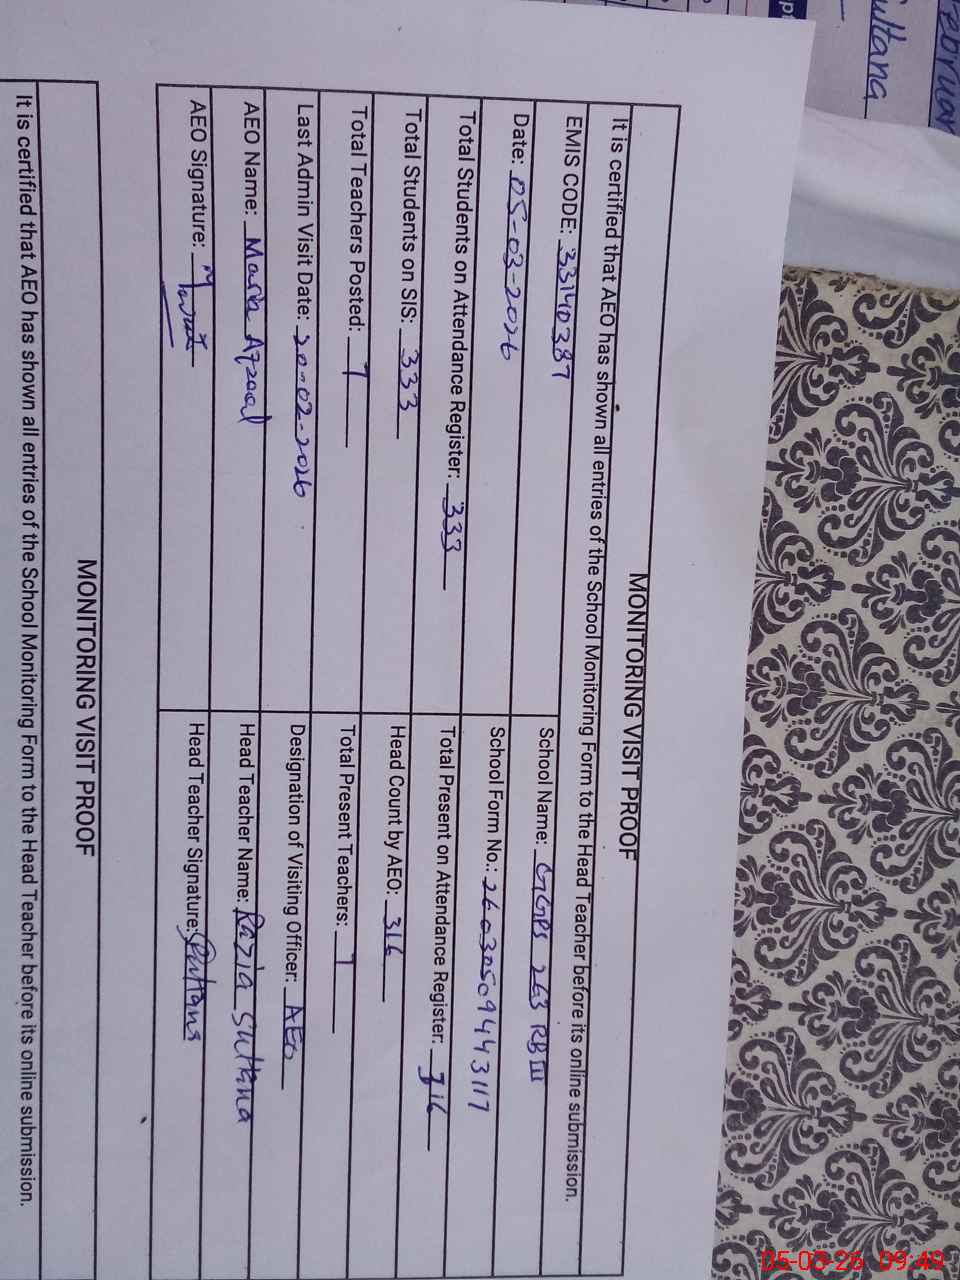 MONITORING VISIT PROOF
It is certified that AEO has shown all entries of the School Monitoring Form to the Head Teacher before its online submission.
EMIS CODE: 33140387
School Name: GGPS 263 RB III
Date: 05-03-2026
School Form No.: 26030509443117
Total Students on Attendance Register: 333
Total Present on Attendance Register: 316
Total Students on SIS: 333
Head Count by AEO: 316
Total Teachers Posted: 7
Total Present Teachers: 7
Last Admin Visit Date: 20-02-2026
Designation of Visiting Officer: AEO
AEO Name: Maria Afzaal
Head Teacher Name: Razia Sultana
AEO Signature:
Head Teacher Signature: Sultana
MONITORING VISIT PROOF
It is certified that AEO has shown all entries of the School Monitoring Form to the Head Teacher before its online submission.
ultana
05-03-26 09:49